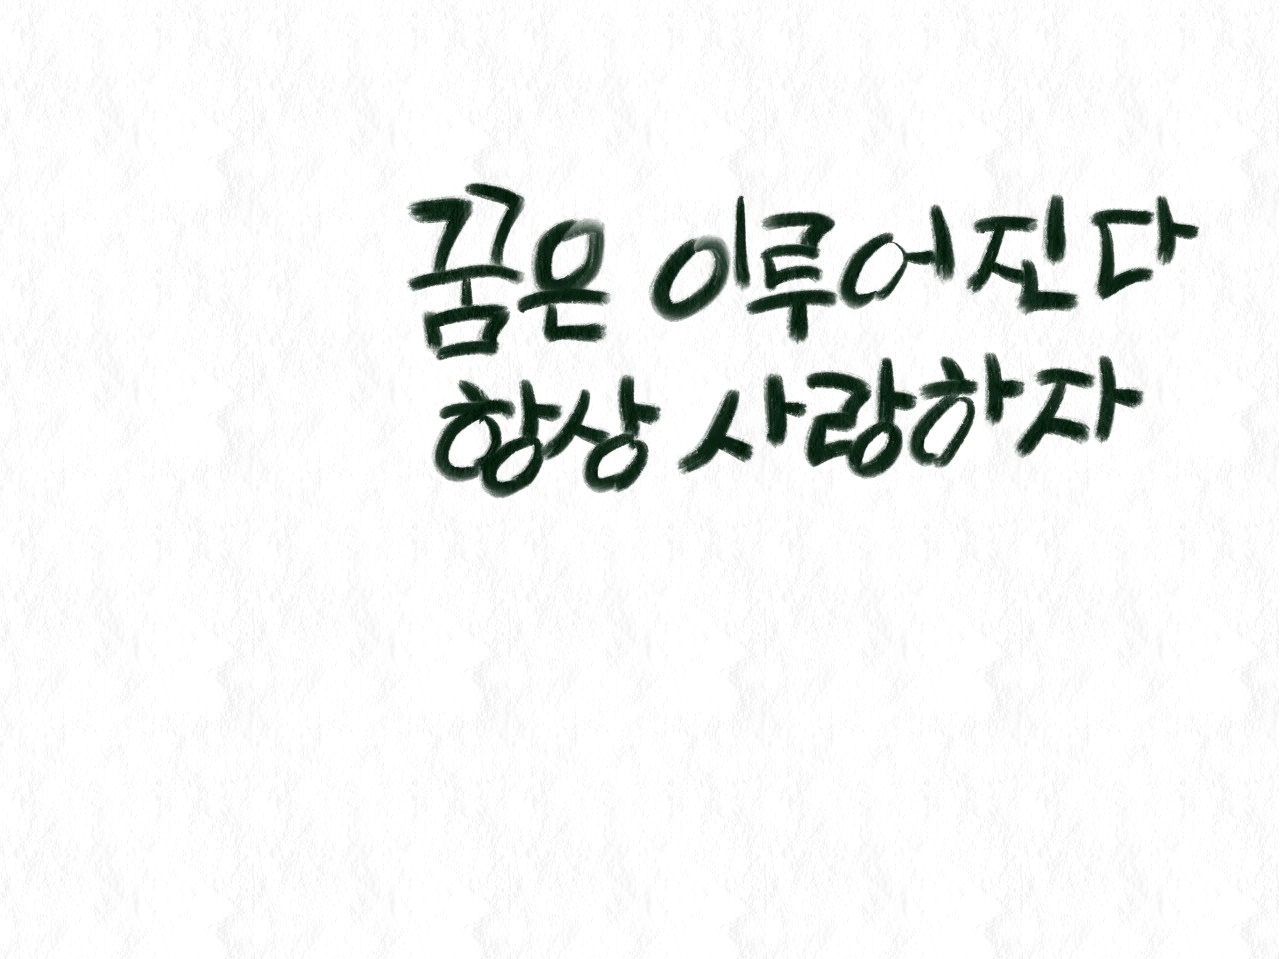 꿈은 이루어진다
항상 사랑하자